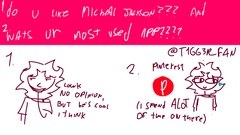 1 do u like Michal Jackson??? And
2 wats ur most used app???
@T1GG3R_FAN
1.
uuhh
No opinion,
but he's cool
i think
2.
pinterest
P
(i spend ALOT
of time on there)